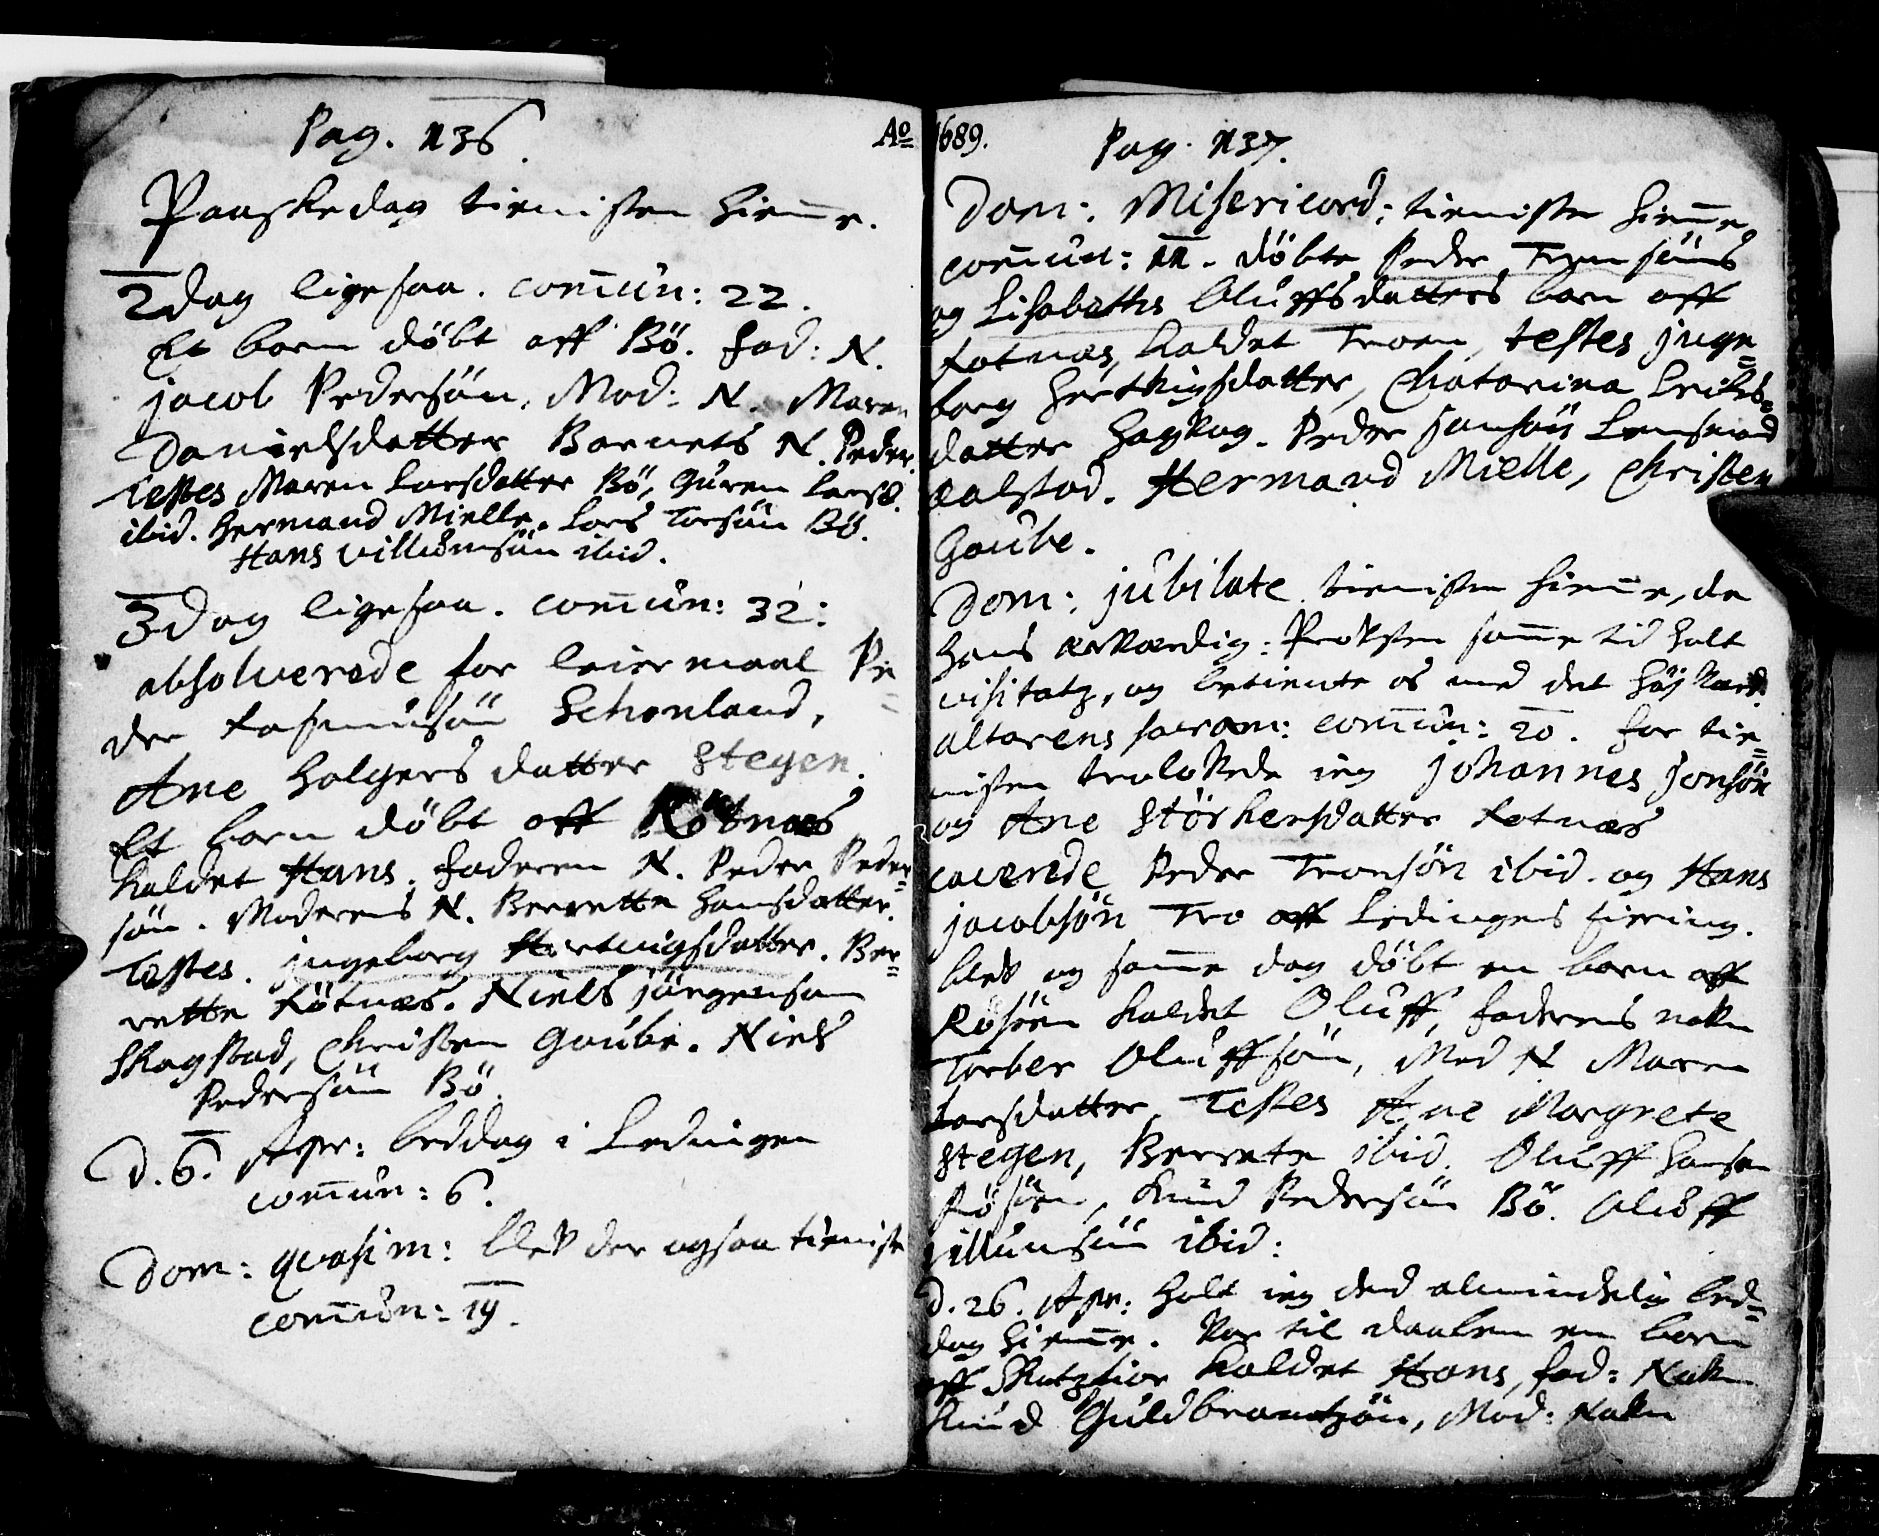 Pag. 136.
Paaskedag tienisten hieme.
2 dag ligesaa. comun: 22.
Et barn döbt aff Bö. fad: N.
jacob Pedersön, Mod: N. Maren
Danielsdatter Barnets N. Peder.
Testes Maren Larsdatter Bö, Guren Larsd.
ibid. Hermand Mielle. Lars Torsön Bö.
Hans Villumsön ibid.
3 dag ligesaa. comun: 32:
absolverede for leiermaal Pe=
der Rasmusön Schonland,
Ane Holgersdatter Stegen.
Et barn döbt aff Rötnæs
kaldet Hans. faderen N. Peder Peder=
søn. Moderens N. Berrette Hansdatter.
Testes. jngeborg Hertvigsdatter. Ber=
rette Rötnæs. Niels jörgensøn
Skagstad, Christen Gaube. Niels
Pedersøn Bö.
D. 6. Apr: beddag i Ledingen
comun: 6.
Dom: quasim: blef der ogsaa tieniste
comun: 19.
Ao 1689.
Pag. 137.
Dom: Misericord: tienisten hieme
comun: 11. döbte Peder Tronsöns
og Lisabeths Oluffsdatters barn aff
Rotnæs, kaldet Tron, testes jnge=
borg Herthigsdatter, Chatarina Leiels=
datter Hagskog. Peder Jonsön Lensmand
Kalstad. Hermand Mielle, Christen
Gaube.
Dom: jubilate tienisten hieme, da
Hans ærværdig: Prosten same tid holt
visitatz, og betiente os med det höjværd.
altarens sacram: comun: 20. for tie=
nisten trolofvede ieg johannes Jonsön
og Ane Störkersdatter Rotnæs
caverede Peder Tronsön ibid. og Hans
jacobsön Tro aff Ledingens fiering.
blef og same dag döbt en barn aff
Rösöen kaldet Oluff, faderens nafn
Torber Oluffsøn, Mod N Maren
Larsdatter, Testes Ane Margrete
Stegen, Berrete ibid. Oluff Hansen
Rösöen, Knud Pedersön Bö. Oluff
villumsön ibid:
D. 26. Apr: holt ieg den almindelig bed=
dag hieme. Var til daaben en barn
aff kaldet Hans, fad: Nafn
Knud Guldbrantzön, Mod: Nafn